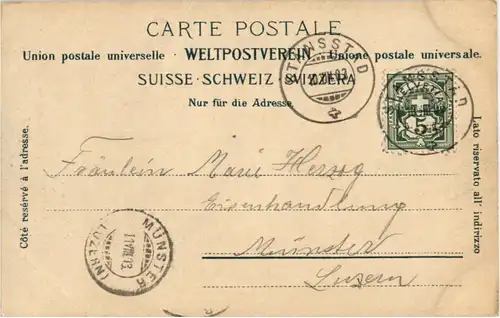 CARTE POSTALE
Union postale universelle · WELTPOSTVEREIN · Unione postale universale.
SUISSE · SCHWEIZ · SVIZZERA
Nur für die Adresse.
STANSSTAD
STANSSTAD
HELVETIA
5
Côté reservé à l'adresse.
Lato riservato all' indirizzo
Fräulein Marie Herzog
Eisenhandlung
Münster
Luzern
MÜNSTER
(LUZERN)